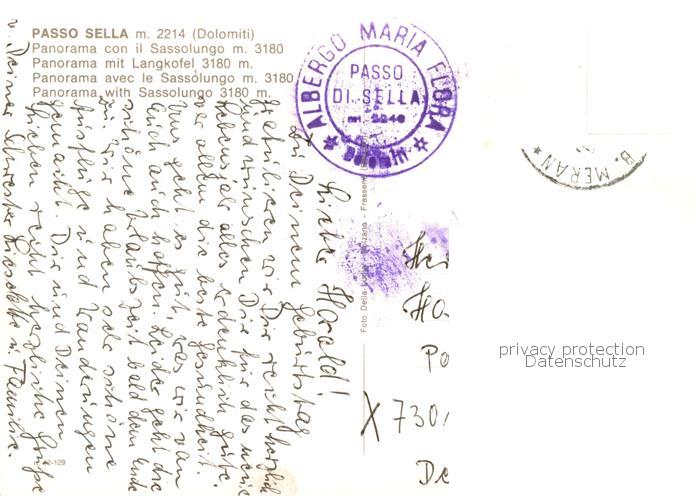 PASSO SELLA m. 2214 (Dolomiti)
Panorama con il Sassolungo m. 3180
Panorama mit Langkofel 3180 m.
Panorama avec le Sassolungo m. 3180
Panorama with Sassolungo 3180 m.
ALBERGO MARIA FLORA
PASSO
DI SELLA
m. 2240
Dolomiti
B. MERAN
Lieber Harald!
Zu Deinem Geburtstag
gratulieren wir Dir recht herzlich
und wünschen Dir für das neue
Lebensjahr alles erdenklich Gute,
vor allem die beste Gesundheit.
Uns geht es gut, was wir von
Euch auch hoffen. Leider geht die
schöne Urlaubszeit bald dem Ende
zu. Wir haben sehr schöne
Ausflüge und Wanderungen
gemacht. Dir und Deinen
Lieben recht herzliche Grüße
v. Deiner Schwester u. Familie.
Foto Della Bolzano - Frassen
Her
Ha
Po
X 730
De
42-129
privacy protection
Datenschutz